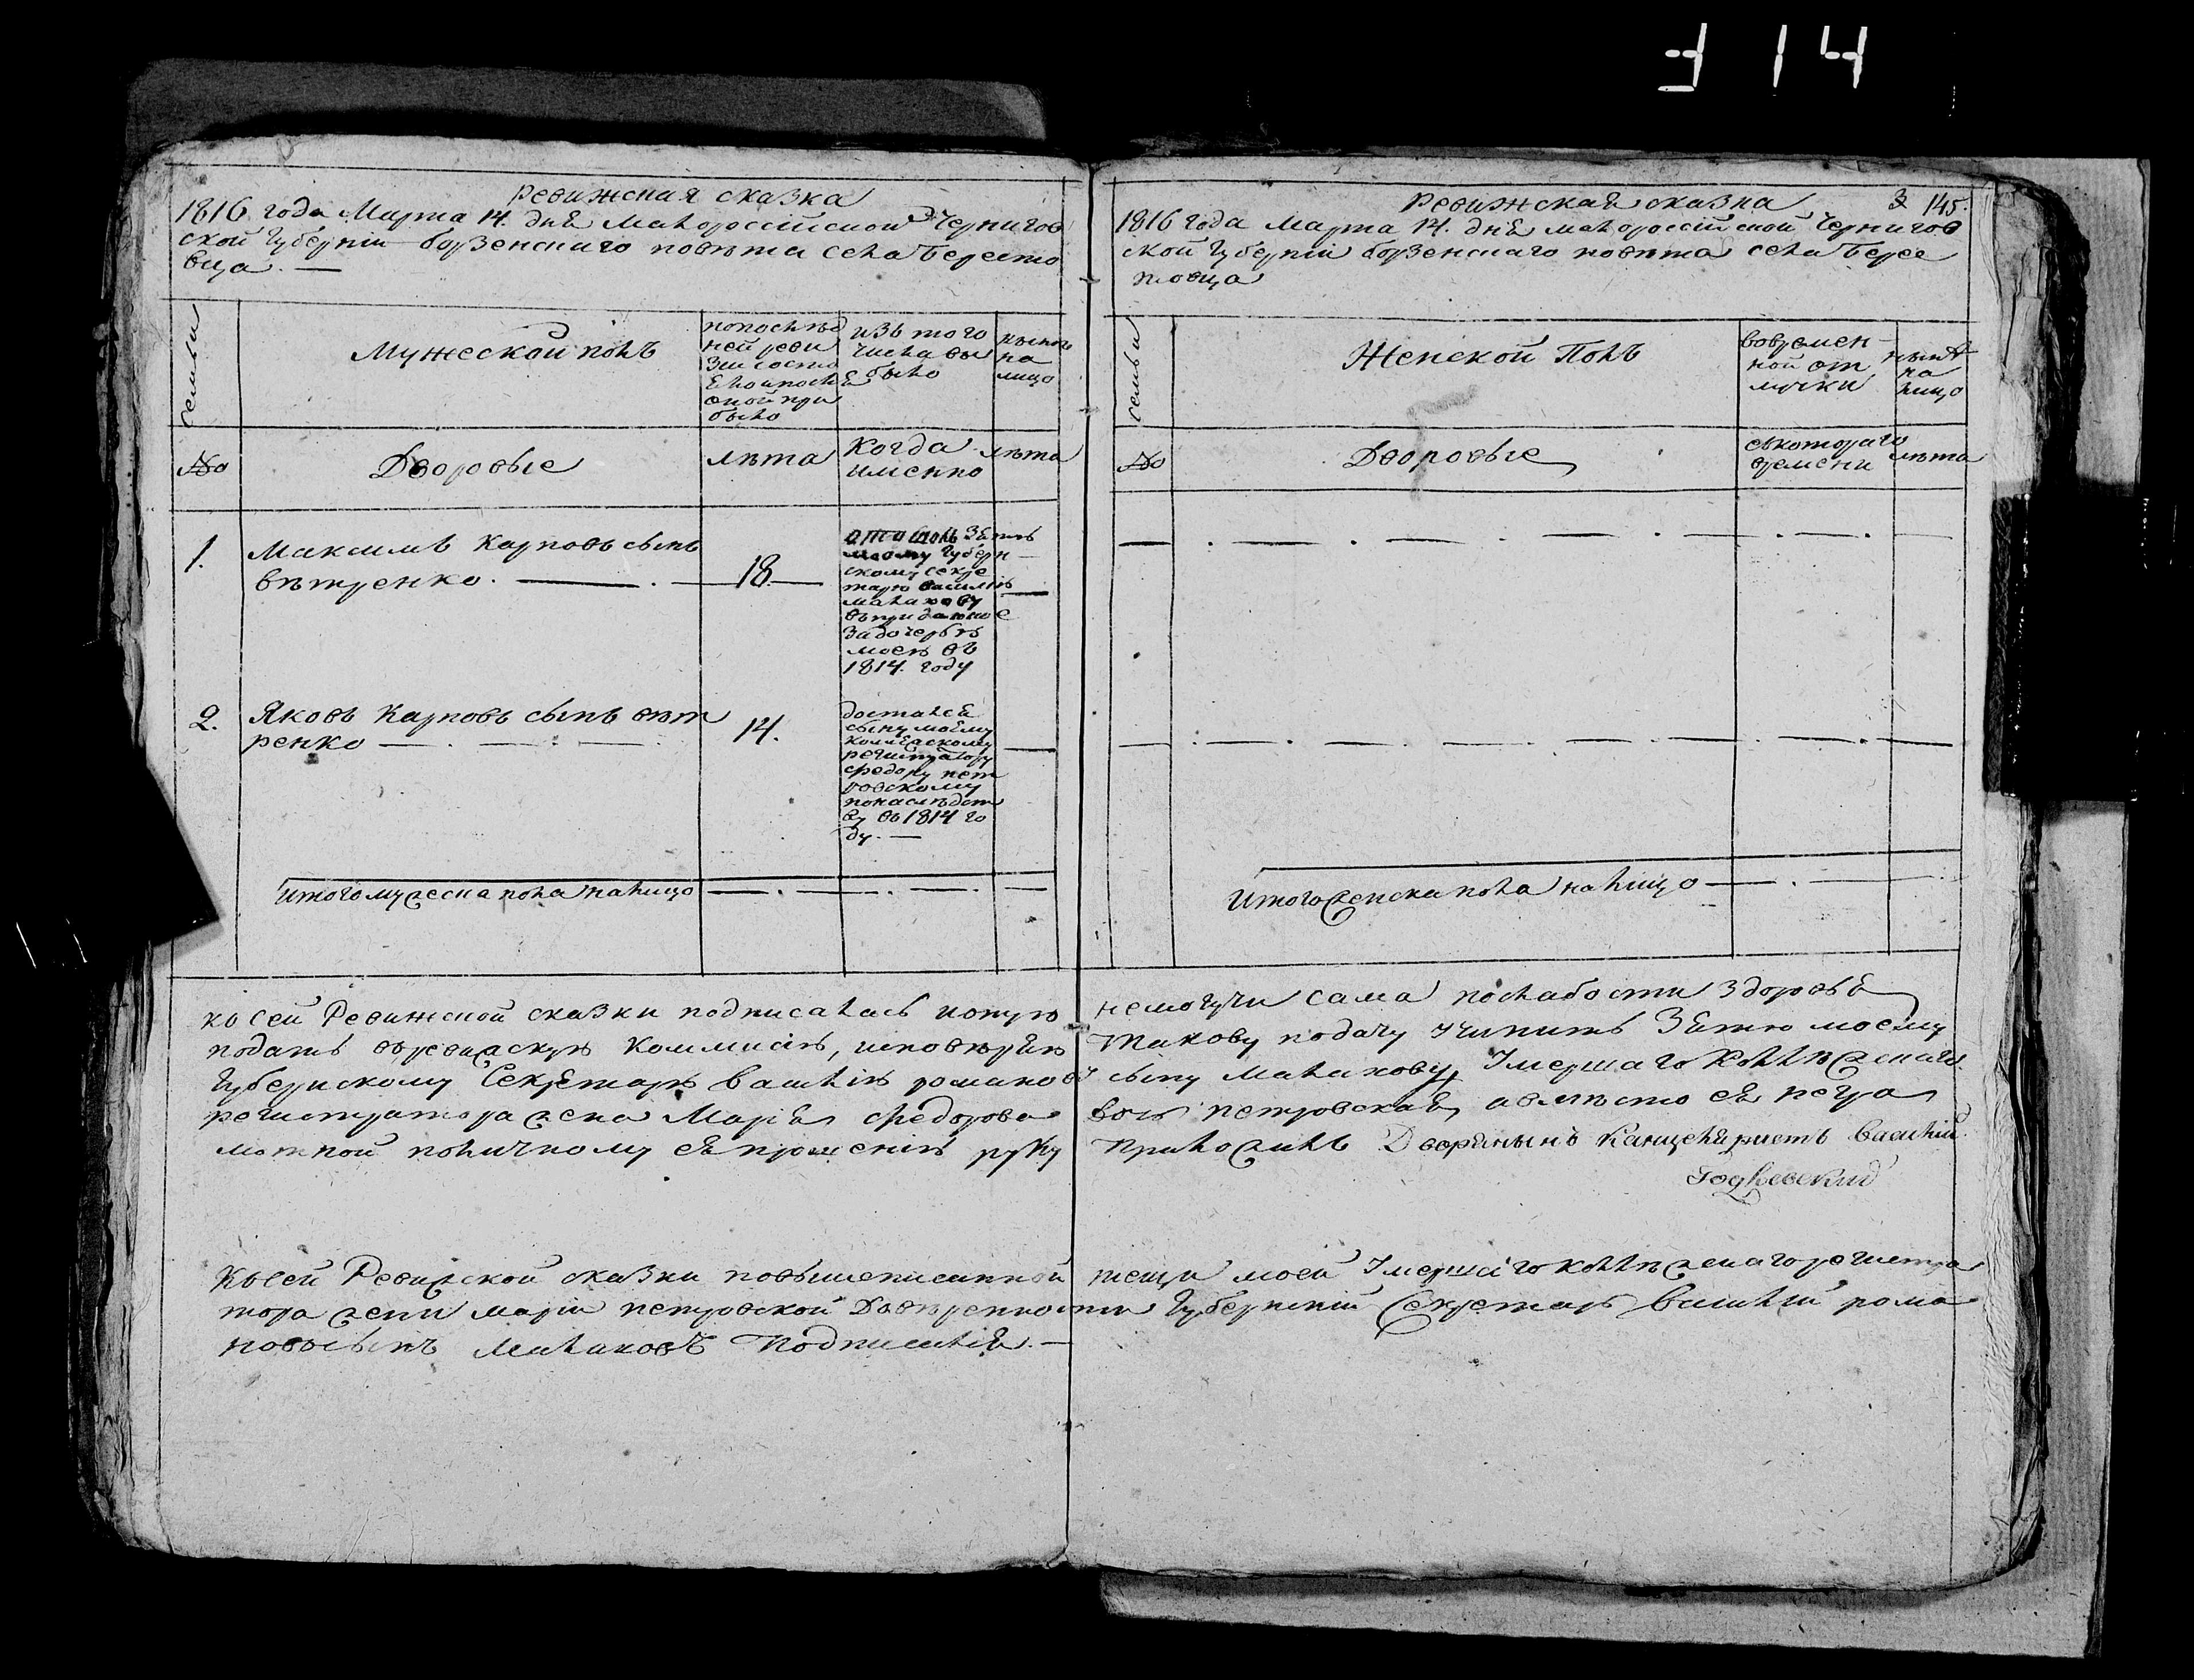 314
Ревижская сказка
1816 года Марта 14. дня Малороссійской Чернигов
ской Губерніи борзенскаго повѣта села Бересто
вца. —
семьи
Мужеской полъ
по послѣд
ней реви
зіи состо
яло и послѣ
оной при
было
изъ того
числа вы
было
нынѣ
на
лицо
№
Дворовые
лѣта
Когда
именно
лѣта
1.
Максимъ Карповъ сынъ
вѣтренко. —
18.
отошолъ зятю
моему Губерн
скому секре
тарю василію
малахову
въ приданное
за дочерью
моею въ
1814. году
2.
Яковъ Карповъ сынъ вѣт
ренко —
14.
достался
сыну моему
коллежскому
регистратору
федору пет
ровскому
по наслѣдст
ву въ 1814 го
ду. —
Итого мужеска пола на лицо
Ревижская сказка
145.
1816 года Марта 14. дня малороссійской Чернигов
ской Губерніи борзенскаго повѣта села Берес
товца
семьи
Женской Полъ
во времен
ной от
лучки
нынѣ
на
лицо
№
Дворовые
съ котораго
времени
лѣта
Итого женска пола на лицо
Ко сей Ревижской сказки подписалась и оную немогучи сама по слабости здоровья
подать въ ревижскую Коммисію, и повѣряю такову подачу учинить Зятю моему
Губернскому Секретарю василію романову сыну Малахову, Умершаго Коллѣжскаго
регистратора жена Марія федорова дочь петровская, а вмѣсто ея неграмотной по личному ея прошенію руку
Приложилъ Дворянинъ Канцеляристъ Василій
Къ сей Ревижской сказки по вышеписанной тещи моей Умершаго коллѣжскаго регистра
тора жени маріи петровской Довѣренности Губернскій Секретарь василій рома
новъ сынъ Малаховъ Подписался. —